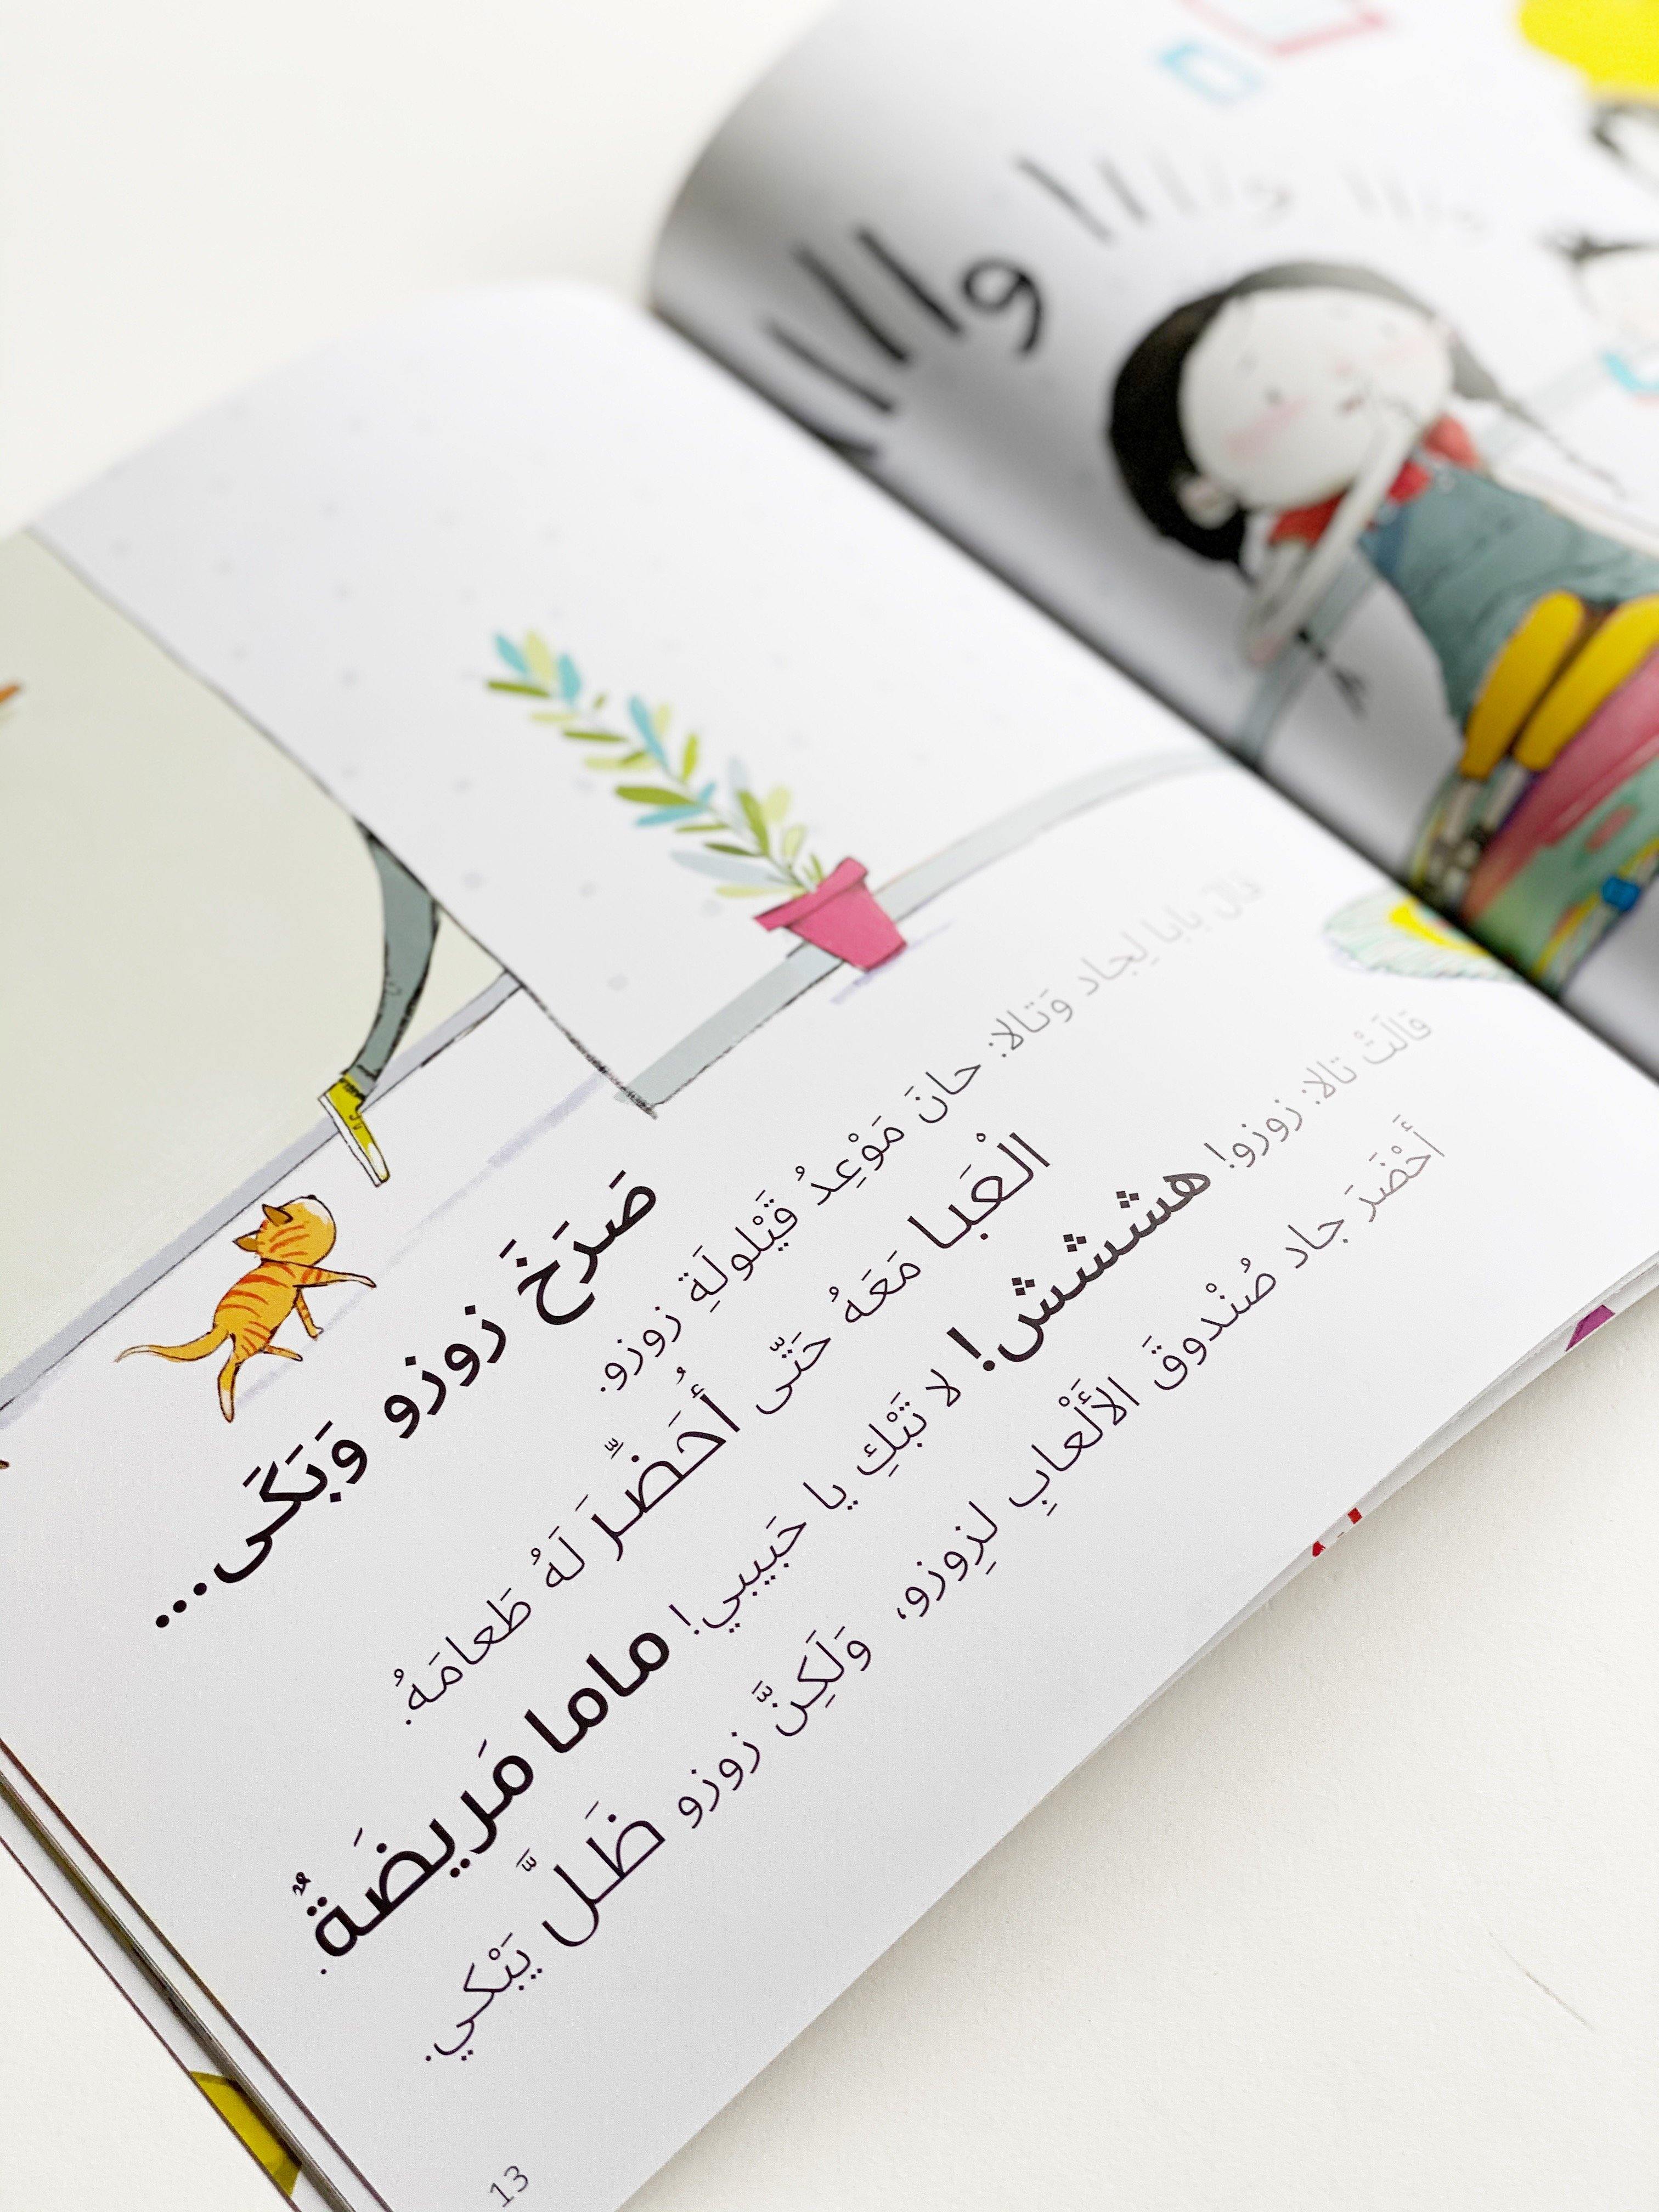 واااا
واااا
صَرَخَ زوزو وَبَكَى...
قالَ بابا لِجاد وَتالا: حانَ مَوْعِدُ قَيْلولَةِ زوزو.
الْعَبا مَعَهُ حَتّى أُحَضِّرَ لَهُ طَعامَهُ.
قالَتْ تالا: زوزو! هششش! لا تَبْكِ يا حَبيبي! ماما مَريضَةٌ.
أَحْضَرَ جاد صُنْدوقَ الأَلْعابِ لزِوزو، وَلَكِنَّ زوزو ظَلَّ يَبْكي.
13